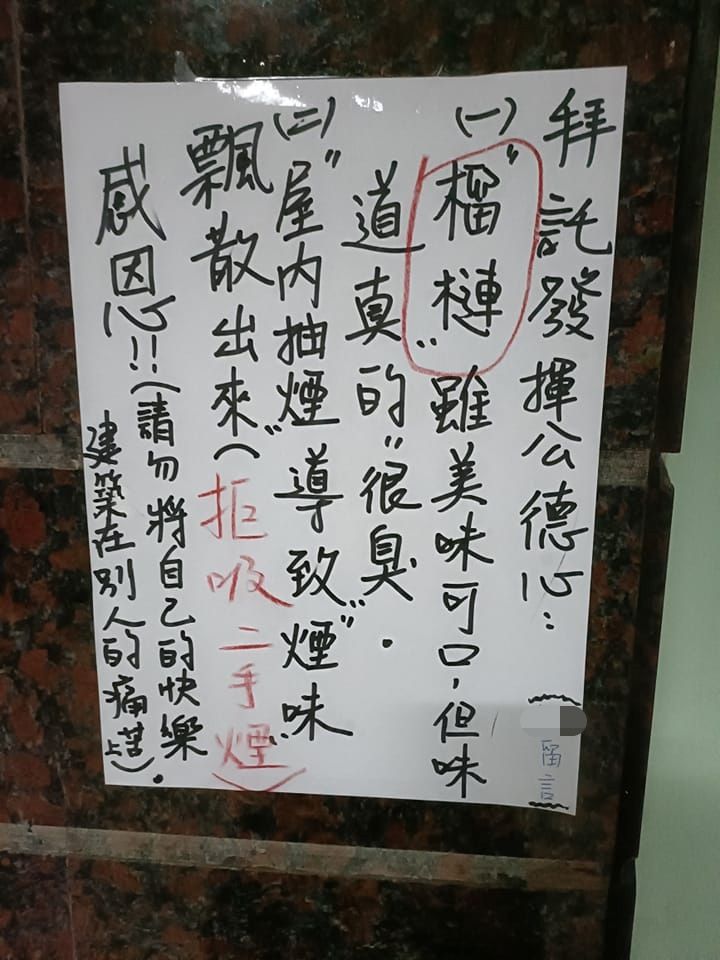 拜託發揮公德心：
留言
(一)“榴槤”雖美味可口，但味
道真的“很臭”.
(二)“屋內抽煙”導致“煙”味
飄散出來(拒吸二手煙)
感因心!!(請勿將自己的快樂
建築在別人的痛苦上).